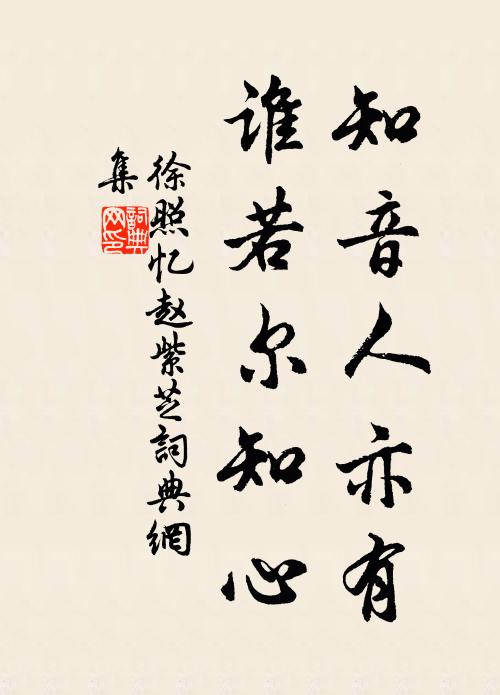 知音人亦有
谁若尔知心
徐照忆赵紫芝詞典網
集
詞典网印